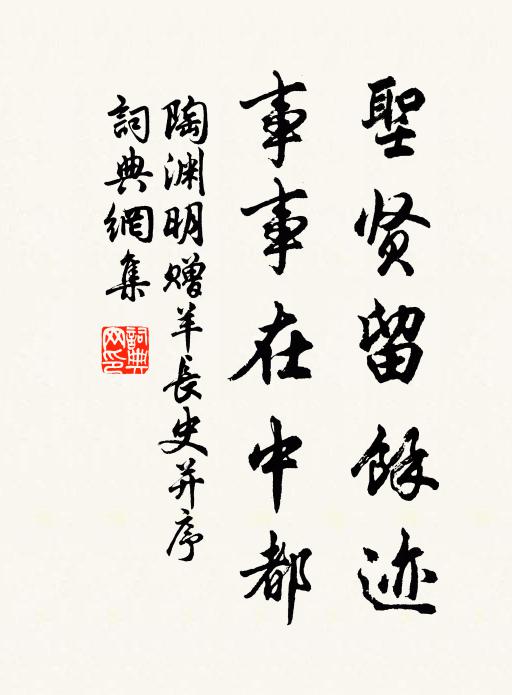 聖贤留餘迹
事事在中都
陶渊明赠羊長史并序
詞典網集
詞典网印